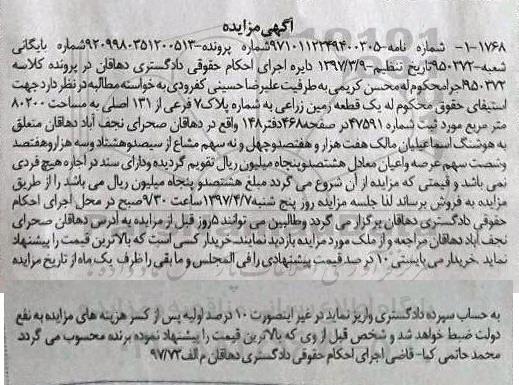 آگهی مزایده
۱۷۶۸-۱- شماره نامه-۹۷۱۰۱۱۲۲۴۹۴۰۰۳۰۵شماره پرونده-۹۲۰۹۹۸۰۳۵۱۲۰۰۵۱۳شماره بایگانی
شعبه-۹۵۰۳۷۲تاریخ تنظیم-۱۳۹۷/۳/۹ دایره اجرای احکام حقوقی دادگستری دهاقان در پرونده کلاسه
۹۵۰۳۷۲اجرامحکوم له محسن کریمی به طرفیت علیرضا حسینی کفرودی به خواسته مطالبه در نظر دارد جهت
استیفای حقوق محکوم له یک قطعه زمین زراعی به شماره پلاک ۷ فرعی از ۱۳۱ اصلی به مساحت ۸۰۲۰۰
متر مربع مورد ثبت شماره ۴۷۵۹۱در صفحه۴۶۸دفتر۱۴۸ واقع در دهاقان صحرای نجف آباد دهاقان متعلق
به هوشنگ اسماعیلیان مالک هفت هزار و هفتصدوچهل و نه سهم مشاع از سیصدوهشتاد وسه هزاروهفتصد
وشصت سهم عرصه واعیان معادل هشتصدوپنجاه میلیون ریال تقویم گردیده ودارای سند در اجاره هیچ فردی
نمی باشد و قیمتی که مزایده از آن شروع می گردد مبلغ هشتصدو پنجاه میلیون ریال می باشد را از طریق
مزایده به فروش برساند لذا جلسه مزایده روز پنج شنبه۱۳۹۷/۴/۷ساعت ۹/۳۰صبح در محل اجرای احکام
حقوقی دادگستری دهاقان برگزار می گردد وطالبین می توانند ۵روز قبل از مزایده به آدرس دهاقان صحرای
نجف آباد دهاقان مراجعه و از ملک مورد مزایده بازدید نمایند-خریدار کسی است که بالاترین قیمت را پیشنهاد
نماید خریدار می بایستی ۱۰ درصد قیمت پیشنهادی را فی المجلس و مابقی را ظرف یک ماه از تاریخ مزایده
به حساب سپرده دادگستری واریز نماید در غیر اینصورت ۱۰ درصد اولیه پس از کسر هزینه های مزایده به نفع
دولت ضبط خواهد شد و شخص قبل از وی که بالاترین قیمت را پیشنهاد نموده برنده محسوب می گردد
محمد حاتمی کیا- قاضی اجرای احکام حقوقی دادگستری دهاقان م الف ۹۷/۷۲